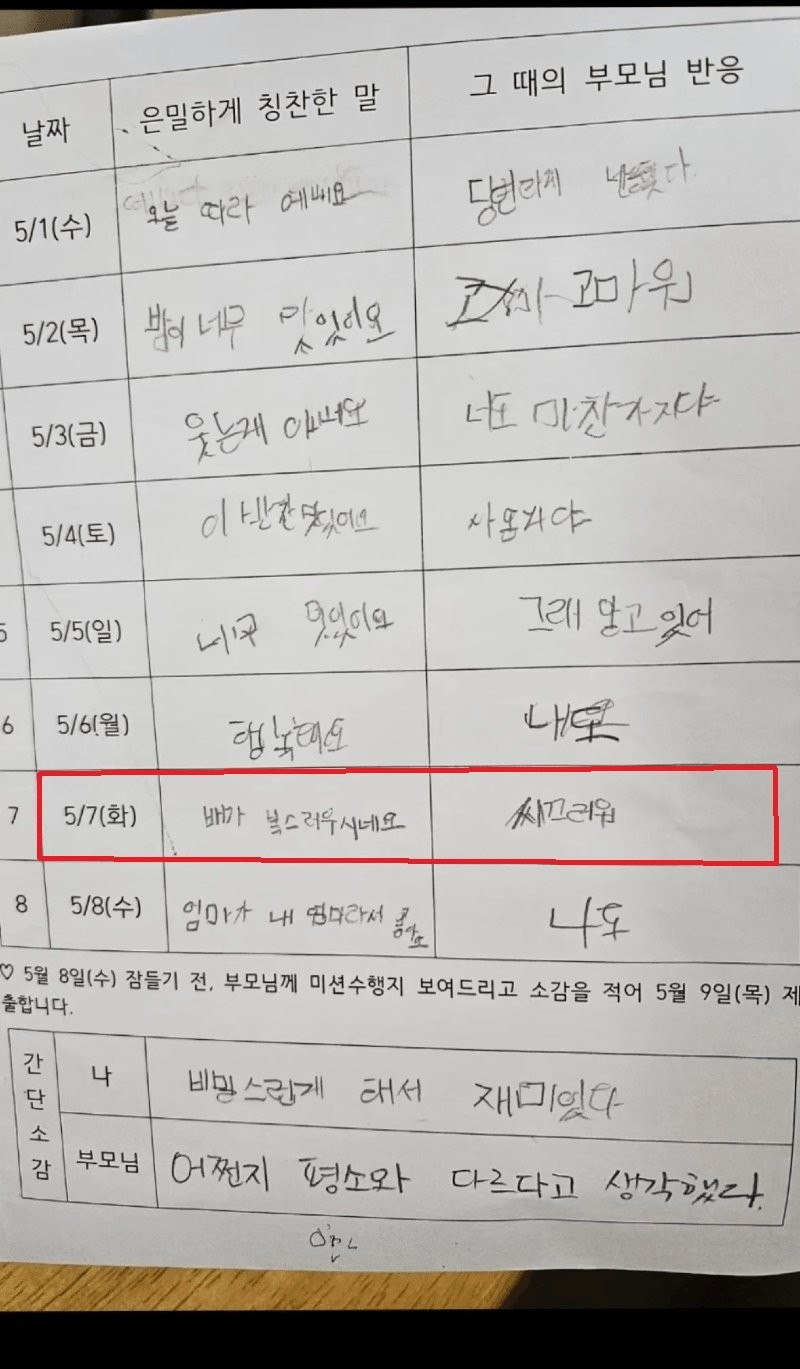 날짜 은밀하게 칭찬한 말 그 때의 부모님 반응
5/1(수) 오늘 따라 예뻐요
5/2(목) 밥이 너무 맛있어요 고마워
5/3(금) 웃는게 너도 마찬가지야
5/4(토) 이 반찬 맛있어요
5 5/5(일) 맛있어요 그래 알고 있어
6 5/6(월) 나도
7 5/7(화) 배가 복스러우시네요 씨끄러워
8 5/8(수) 엄마가 내 엄마라서 좋아요 나도
♡ 5월 8일(수) 잠들기 전, 부모님께 미션수행지 보여드리고 소감을 적어 5월 9일(목) 제
출합니다.
간단소감
나 비밍스런게 태서 재미있다
부모님 어쩐지 평소와 다르다고 생각했다.